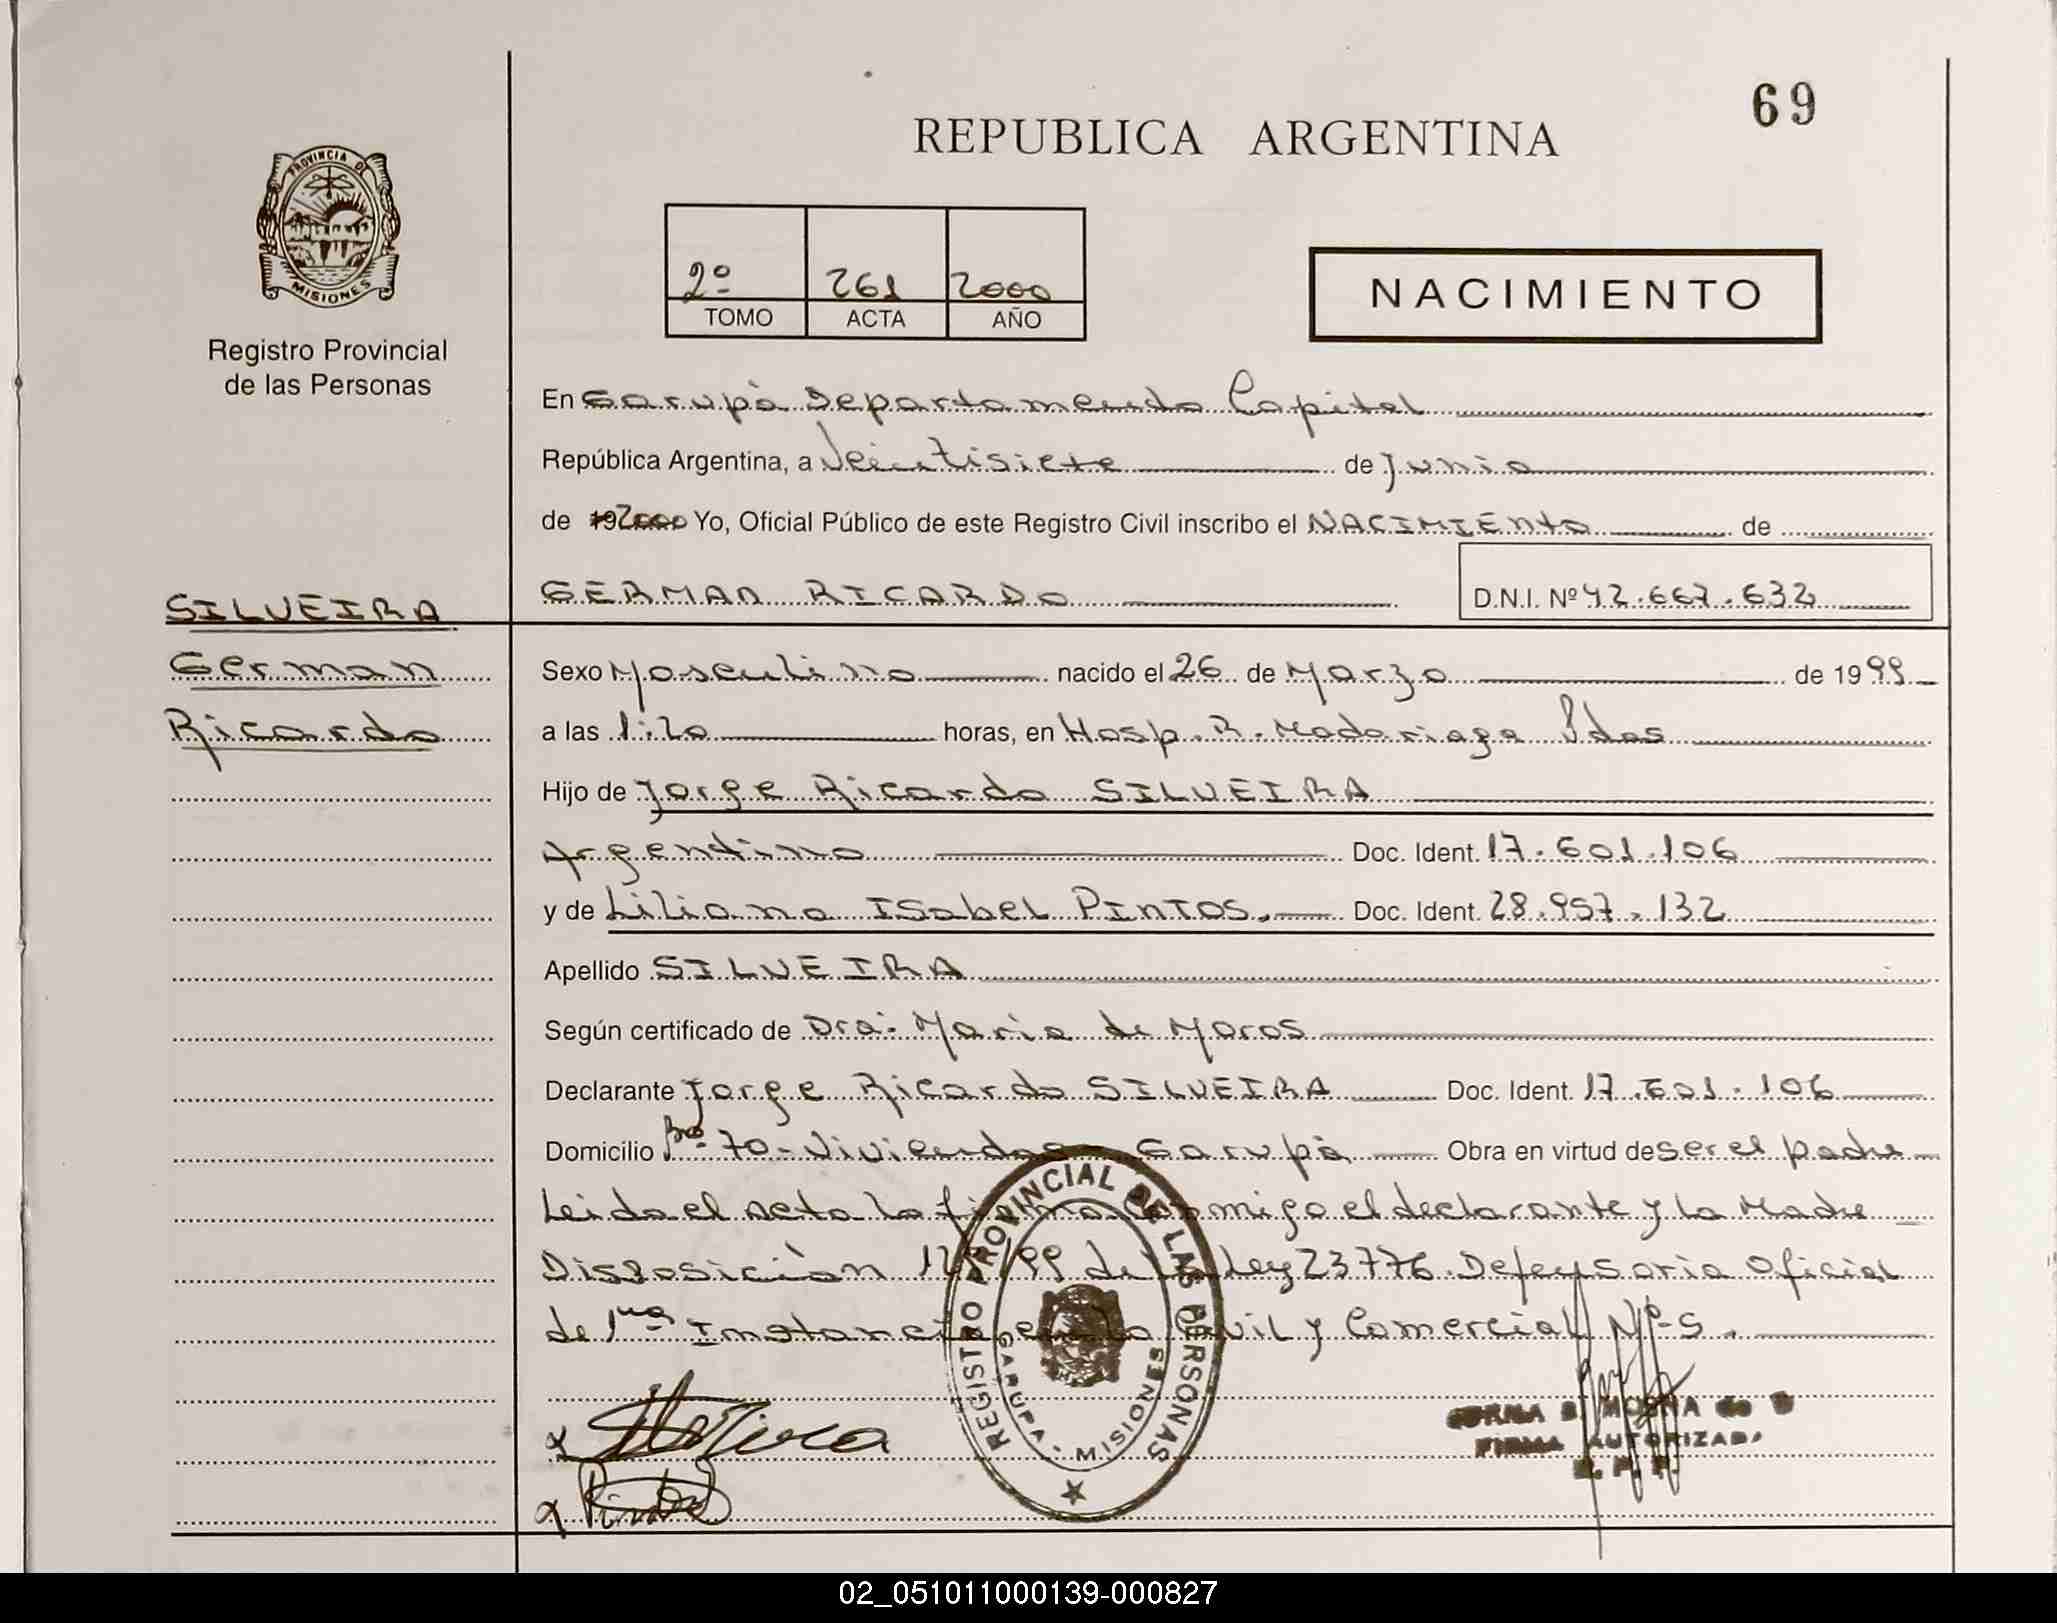 69
REPUBLICA ARGENTINA
PROVINCIA DE
MISIONES
Registro Provincial
de las Personas
2º 261 2000
TOMO ACTA AÑO
NACIMIENTO
En Garupà Departamento Capital
República Argentina, a Veintisiete de Junio
de 192000 Yo, Oficial Público de este Registro Civil inscribo el NACIMIENTO de
GERMAN RICARDO D.N.I. Nº 42.667.632
SILVEIRA
German
Ricardo
Sexo Masculino nacido el 26 de Marzo de 1999
a las 1:20 horas, en Hosp. R. Madariaga Pdas
Hijo de Jorge Ricardo SILVEIRA
Argentino Doc. Ident. 17.601.106
y de Liliana ISabel PINTOS. Doc. Ident. 28.957.132
Apellido SILVEIRA
Según certificado de Dra: Maria de Moros
Declarante Jorge Ricardo SILVEIRA Doc. Ident. 17.601.106
Domicilio Bro 70-Viviendas Garupà Obra en virtud de ser el padre
Leida el acta la firma conmigo el declarante y la Madre
Disposiciòn /99 de la Ley 23776. Defensoria Oficial
de 1ra Instancia en lo Civil y Comercial Nº 5.
REGISTRO PROVINCIAL DE LAS PERSONAS
GARUPA - MISIONES
FIRMA AUTORIZADA
R. P. P.
02_051011000139-000827